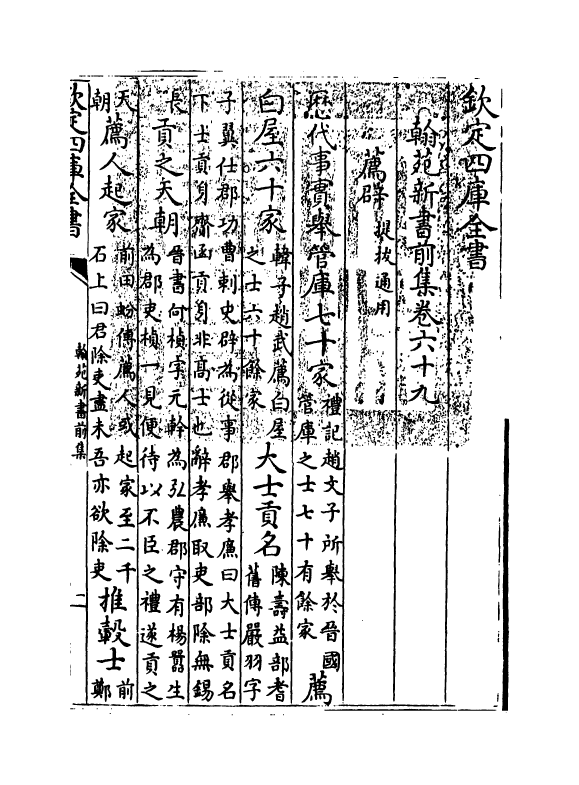 欽定四庫全書
翰苑新書前集卷六十九
薦辟 提拔通用
歴代事實舉管庫七十家 禮記趙文子所舉於晉國
管庫之士七十有餘家 薦
白屋六十家 韓子趙武薦白屋
之士六十餘家 大士貢名 陳壽益部耆
舊傳嚴羽字
子翼仕郡功曹刺史辟為從事郡舉孝廉曰大士貢名
下士貢身齎函貢身非高士也辭孝廉取吏部除無錫
長 貢之天朝 晉書向楨字元幹為弘農郡守有楊囂生
為郡吏楨一見便待以不臣之禮遂貢之
天
朝 薦人起家 前田蚡傳薦人或起家至二千
石上曰君除吏盡未吾亦欲除吏 推轂士 前
鄭
欽定四庫全書 翰苑新書前集